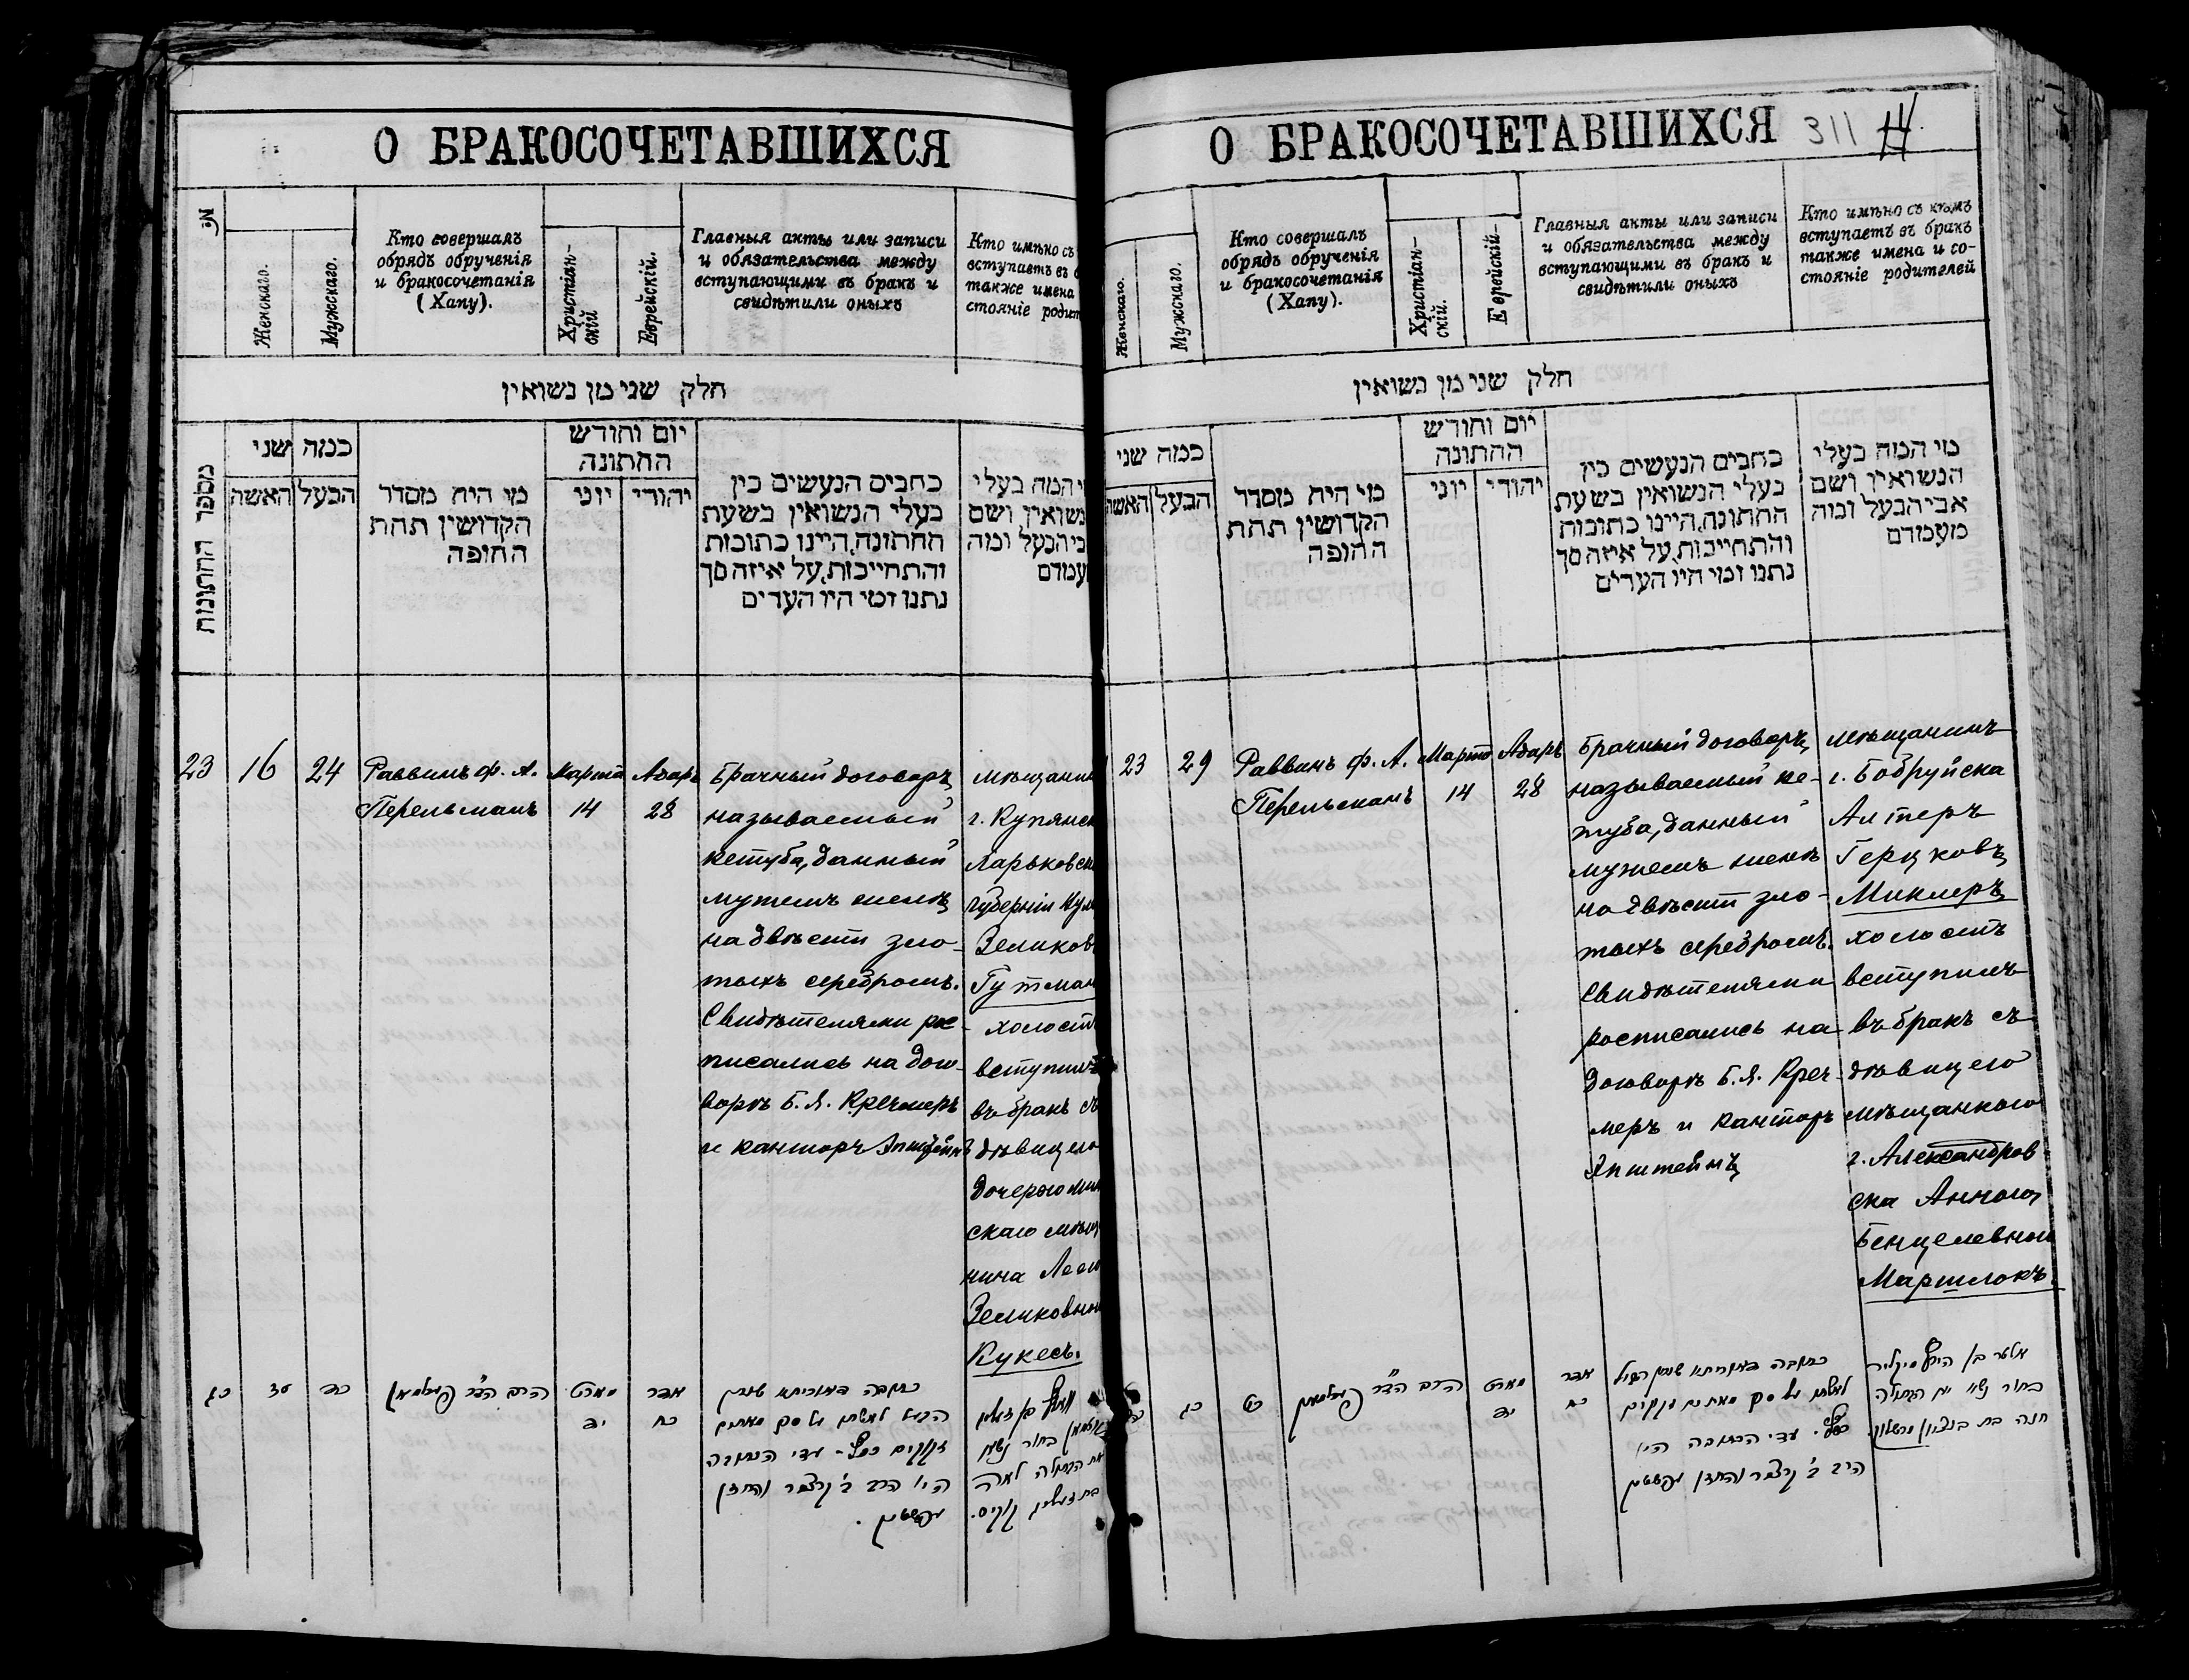 О БРАКОСОЧЕТАВШИХСЯ
№
Женскаго.
Мужскаго.
Кто совершалъ
обрядъ обрученія
и бракосочетанія
(Хапу).
Христіан-
скій
Еврейскій.
Главныя акты или записи
и обязательства между
вступающими въ бракъ и
свидѣтили оныхъ
Кто имѣно съ
вступаетъ въ
также имена
стояніе родит
חלק שני מן נשואין
מספר החתונות
כמה שני
האשה
הבעל
מי היה מסדר
הקדושין תחת
החופה
יום וחודש
החתונה
יוני
יהודי
כתבים הנעשים בין
בעלי הנשואין בשעת
החתונה, היינו כתובות
והתחייבות, על איזה סך
נתנו ומי היו העדים
י המה בעלי
נשואין ושם
בי הבעל ומה
עמדם
23
16
24
Раввинъ Ф. А.
Перельманъ
Марта
14
Адаръ
28
Брачный договоръ
называемый
кетуба, данный
мужемъ женѣ
на двѣсти зло-
тыхъ серебромъ.
Свидѣтелями рос-
писались на дого-
ворѣ Б. Я. Кречмеръ
и канторъ Эпштейнъ
мѣщанин
г. Купянск
Харьковск
губерніи
Зеликов
Гутман
холост
вступилъ
въ бракъ съ
дѣвицею
дочерью мин
скаго мѣщ
нина Леи
Зеликовно
Кукесъ.
כג
כד
הרב הד״ר פערלמאן
מארט
יד
אדר
כח
כתובה דאוריתא שנתן
הבעל לאשתו על סך מאתים
זקוקים כסף - עדי הכתובה
היו הרב ב׳ קרצמר והחזן
עפשטיין.
בת זעליג קוקיס.
О БРАКОСОЧЕТАВШИХСЯ
311
Женскаго.
Мужскаго.
Кто совершалъ
обрядъ обрученія
и бракосочетанія
(Хапу).
Христіан-
скій.
Еврейскій-
Главныя акты или записи
и обязательства между
вступающими въ бракъ и
свидѣтили оныхъ
Кто имѣно съ кѣмъ
вступаетъ въ бракъ
также имена и со-
стояніе родителей
חלק שני מן נשואין
כמה שני
האשה
הבעל
מי היה מסדר
הקדושין תחת
החופה
יום וחודש
החתונה
יוני
יהודי
כתבים הנעשים בין
בעלי הנשואין בשעת
החתונה, היינו כתובות
והתחייבות, על איזה סך
נתנו ומי היו העדים
מי המה בעלי
הנשואין ושם
אבי הבעל ומה
מעמדם
23
29
Раввинъ Ф. А.
Перельманъ
Марта
14
Адаръ
28
Брачный договоръ,
называемый ке-
туба, данный
мужемъ женѣ
на двѣсти зло-
тыхъ серебромъ.
Свидѣтелями
росписались на
договорѣ Б. Я. Креч-
меръ и канторъ
Эпштейнъ
мѣщанинъ
г. Бобруйска
Алтеръ
Герцковъ
Миклеръ
холостъ
вступилъ
въ бракъ съ
дѣвицею
мѣщанкою
г. Александров-
ска Анною
Бенцелевною
Маршлокъ.
כג
כט
הרב הד״ר פערלמאן
מארט
יד
אדר
כח
כתובה דאוריתא שנתן הבעל
לאשתו על סך מאתים זקוקים
כסף. עדי הכתובה היו
הרב ב׳ קרצמר והחזן עפשטיין
אלטר בן הירץ מיקליר
בחור נשא את הבתולה
חנה בת בנציון מרשלוק